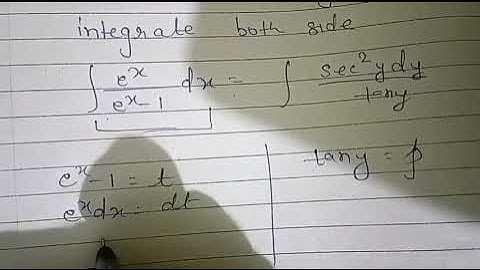 integrate both side
∫ e^x/(e^x-1) dx = ∫ sec²y dy/tany
e^x-1 = t
e^x dx = dt
tany = p